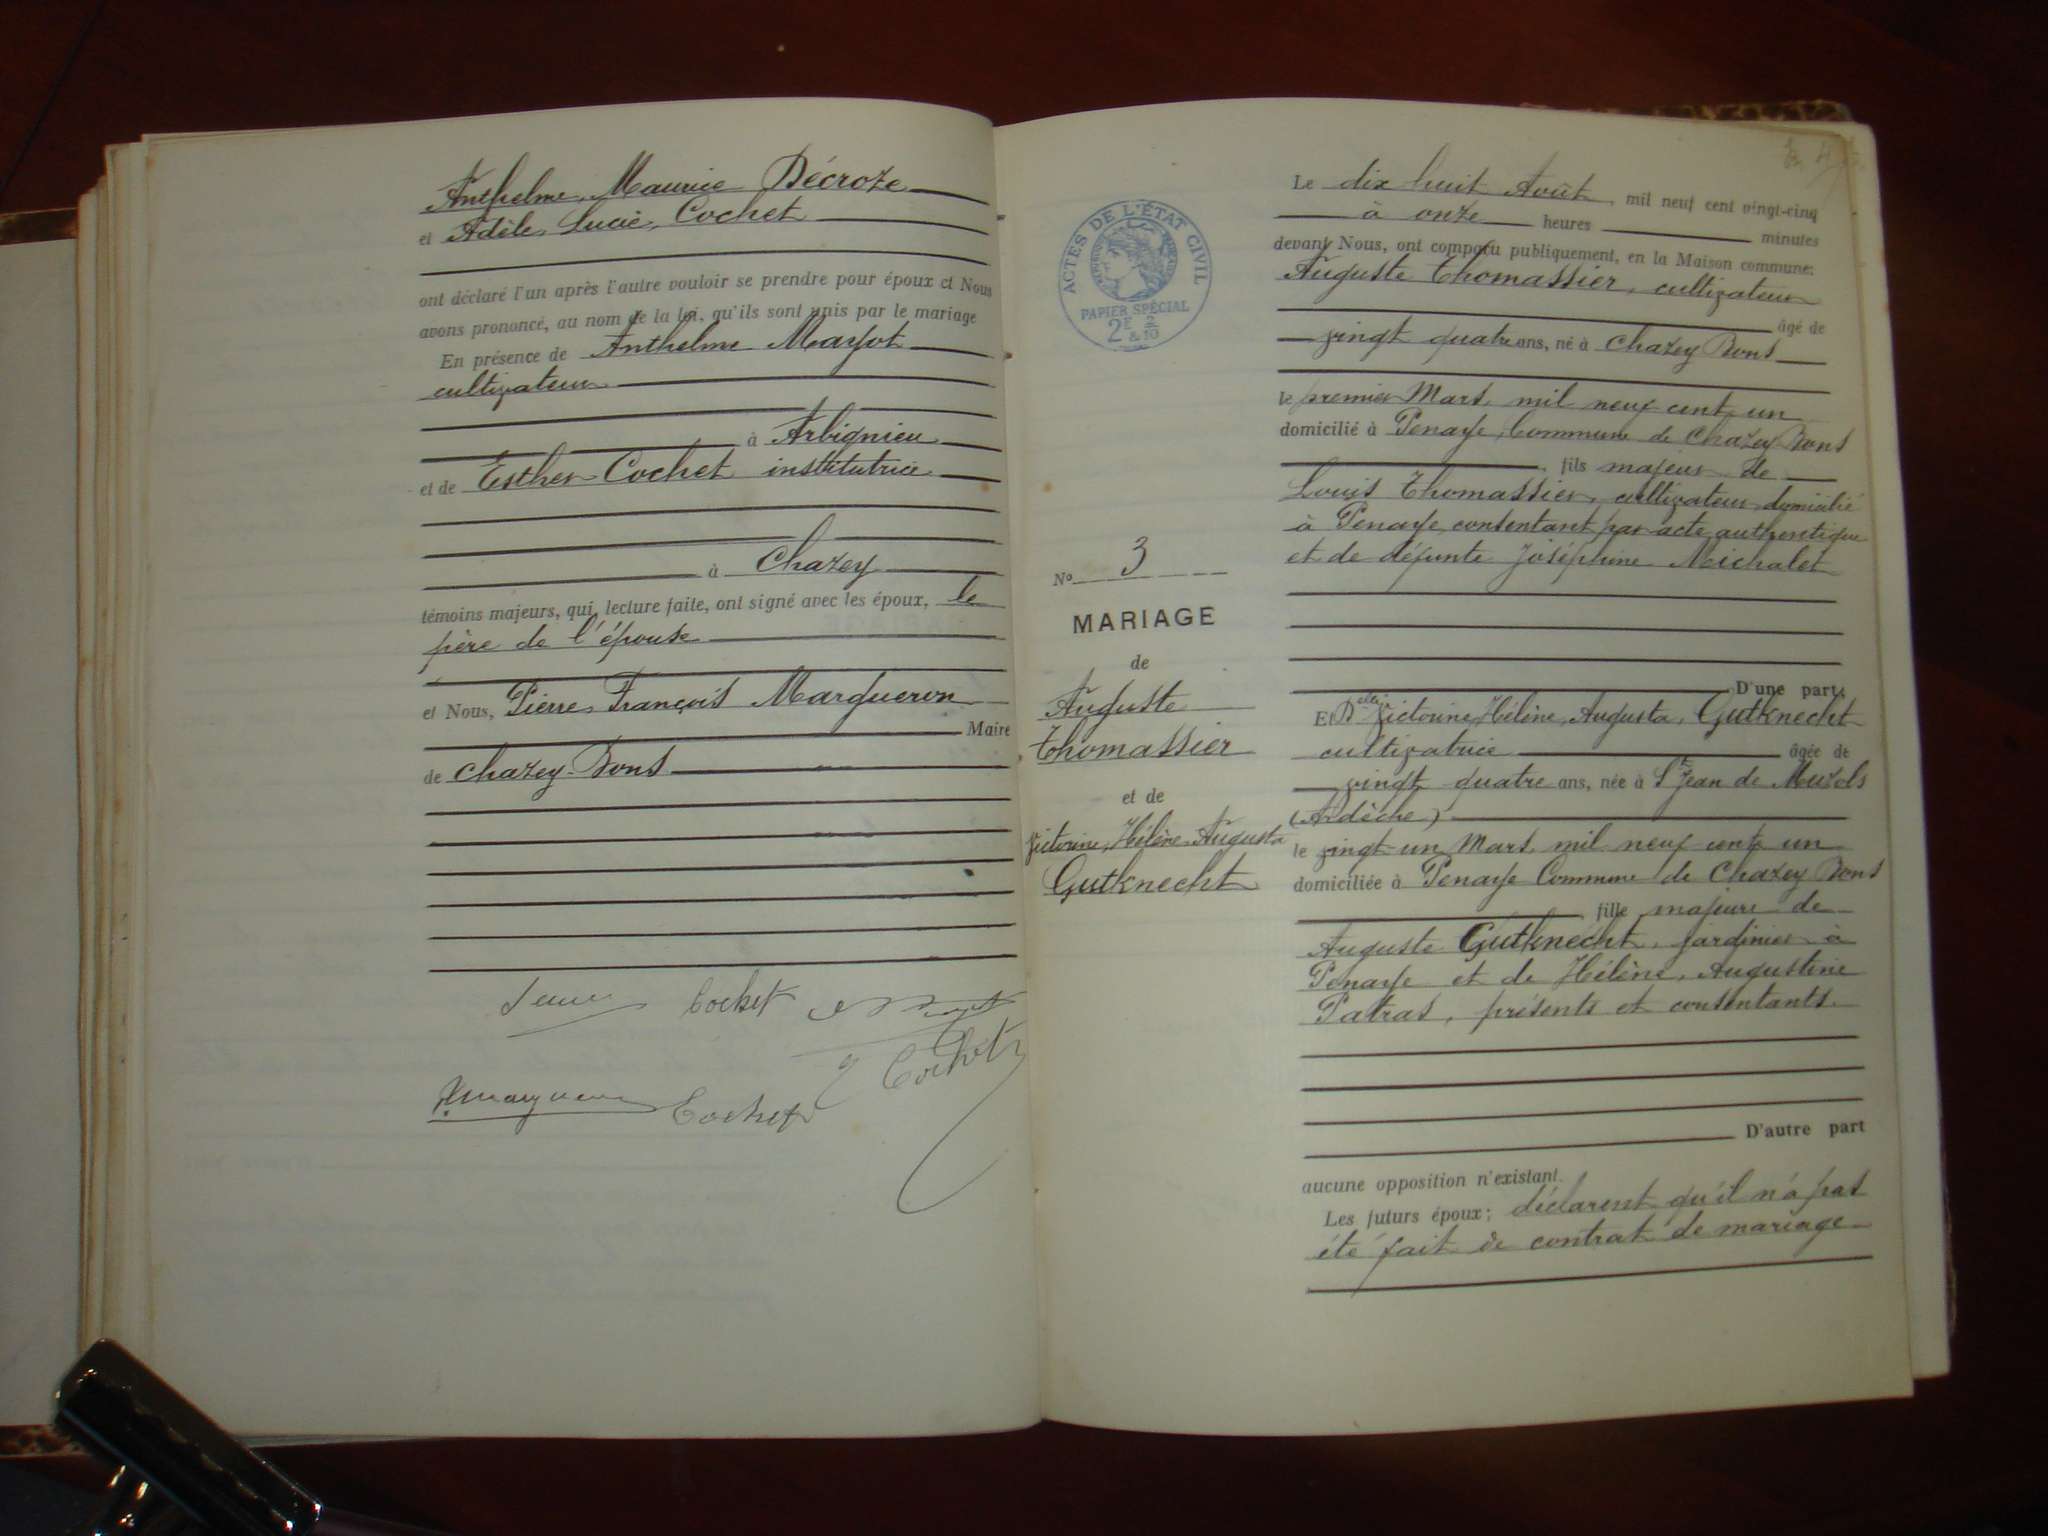 Anthelme, Maurice Décroze
et Adèle, Lucie, Cochet
ont déclaré l'un après l'autre vouloir se prendre pour époux et Nous
avons prononcé, au nom de la loi, qu'ils sont unis par le mariage
En présence de Anthelme Marjot
cultivateur
à Arbignieu
et de Esther Cochet institutrice
à Chazey
témoins majeurs, qui, lecture faite, ont signé avec les époux, le
père de l'épouse
et Nous, Pierre, François Margueron
Maire
de Chazey-Bons
Cochet
Cochet
Cochet
ACTES DE L'ÉTAT CIVIL
PAPIER SPÉCIAL
2E & 2/10
No 3
MARIAGE
de
Auguste
Thomassier
et de
Victorine, Hélène, Augusta
Gutknecht
Le dix huit Août, mil neuf cent vingt-cinq
à onze heures minutes
devant Nous, ont comparu publiquement, en la Maison commune:
Auguste Thomassier, cultivateur
âgé de
vingt quatre ans, né à Chazey Bons
le premier Mars mil neuf cent un
domicilié à Penaye, Commune de Chazey Bons
fils majeur de
Louis Thomassier, cultivateur domicilié
à Penaye, consentant par acte authentique
et de défunte Joséphine Michalet
D'une part,
Et Delle Victorine, Hélène, Augusta, Gutknecht
cultivatrice âgée de
vingt quatre ans, née à St Jean de Muzols
(Ardèche)
le vingt un Mars mil neuf cent un
domiciliée à Penaye Commune de Chazey Bons
fille majeure de
Auguste Gutknecht, jardinier à
Penaye et de Hélène, Augustine
Patras, présents et consentants.
D'autre part
aucune opposition n'existant.
Les futurs époux; déclarent qu'il n'a pas
été fait de contrat de mariage